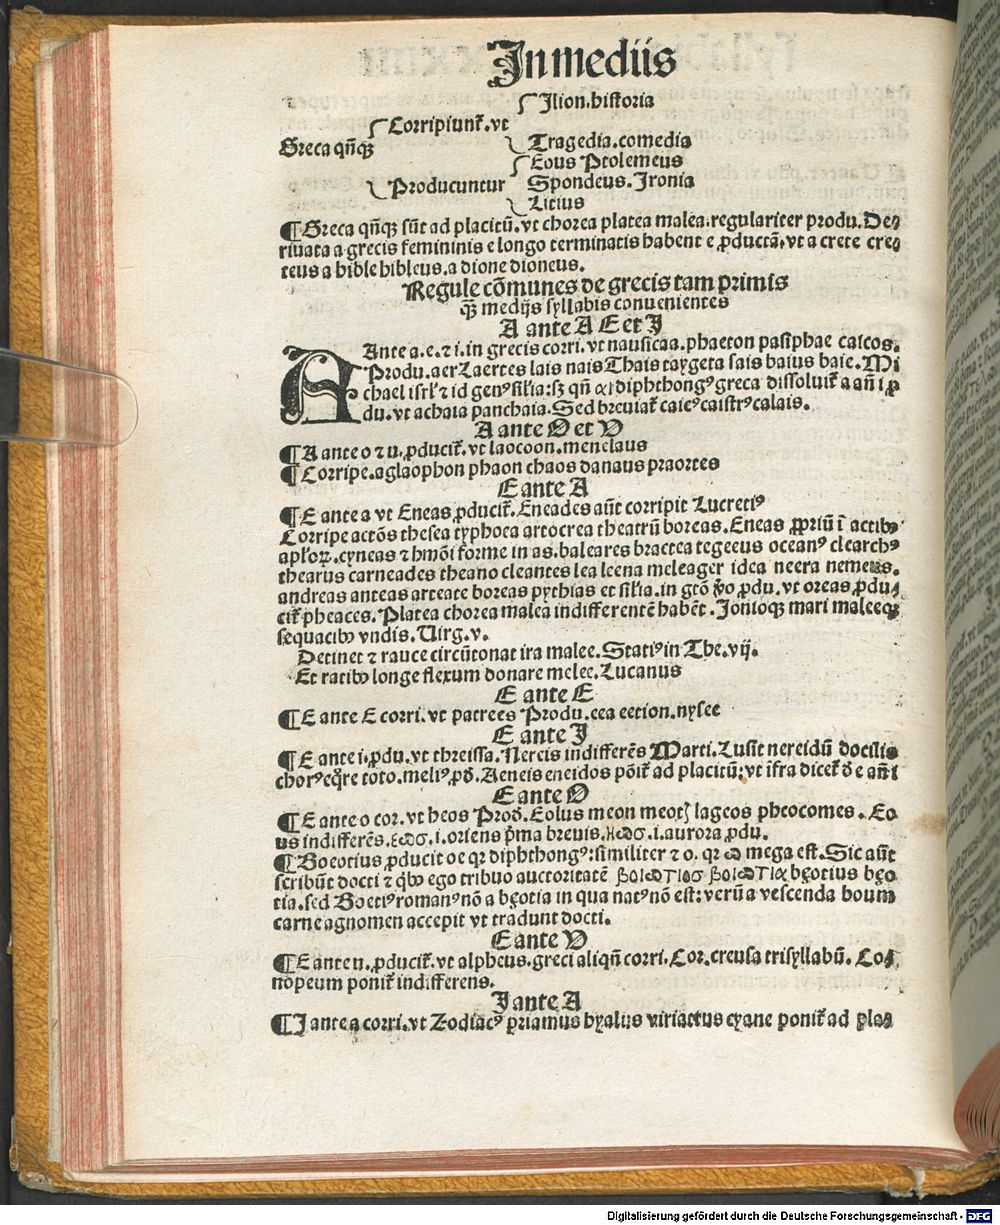 In mediis
Ilion.historia
Corripiunt̃.vt
Greca qñq̃
Tragedia.comedia
Eous Ptolemeus
Producuntur Spondeus.Ironia
Licius
¶Greca qñq̃ sũt ad placitũ.vt chorea platea malea.regulariter produ.De⸗
riuata a grecis femininis e longo terminatis habent e ꝓductã.vt a crete cre⸗
teus a bible bibleus.a dione dioneus.
Regule cõmunes de grecis tam primis
q̃ȝ medijs syllabis conuenientes
A ante A E et I
Ante a.e.⁊ i.in grecis corri.vt nausicaa.phaeton pasiphae caicos.
Produ.aer Laertes lais nais Thais taygeta sais baius baie.Mi
chael isrl̃ ⁊ id genꝰ sil̃ia:sȝ qñ αι diphthongꝰ greca dissoluit̃ a añ i ꝓ
du.vt achaia panchaia.Sed breuiat̃ caicꝰ caistrꝰ calais.
A ante O et V
¶A ante o ⁊ u.ꝓducit̃.vt laocoon.menelaus
¶Corripe.aglaophon phaon chaos danaus praortes
E ante A
¶E ante a vt Eneas ꝓducit̃.Eneades aũt corripit Lucretiꝰ
Corripe actõs thesea typhoea artocrea theatrũ boreas.Eneas ꝓpriũ ĩ actibꝰ
apl̃oꝝ.cyneas ⁊ hmõi forme in as.baleares bractea tegeeus oceanꝰ clearchꝰ
thearus carneades theano cleantes lea leena meleager idea neera nemeus.
andreas anteas arteate boreas pythias et sil̃ia.in gtõ ṽo ꝓdu.vt oreas ꝓdu⸗
cit̃ pheaces.Platea chorea malea indifferentẽ habẽt.Ionioqȝ mari maleeqȝ
sequacibꝰ vndis.Uirg.v.
Detinet ⁊ rauce circũtonat ira malee.Statiꝰ in The.vij.
Et ratibꝰ longe flexum donare melee.Lucanus
E ante E
¶E ante E corri.vt patrees Produ.eea eetion.nysee
E ante I
¶E ante i.ꝓdu.vt threissa.Nereis indifferẽs Marti.Lusit nereidũ docilis
chorꝰ eq̃re toto.meliꝰ ꝓđ.Aeneis eneidos põit̃ ad placitũ:vt ĩfra dicet̃ đ e añ i
E ante O
¶E ante o cor.vt heos Prođ.Eolus meon meotȝ lageos pheocomes.Eo
us indifferẽs.εωσ.i.oriens p̃ma breuis.ηωσ.i.aurora ꝓdu.
¶Boeotius ꝓducit oe qꝛ diphthongꝰ:similiter ⁊ o.qꝛ ω mega est.Sic aũt
scribũt docti ⁊ q̃bꝰ ego tribuo auctoritatẽ βοιωτιοσ βοιωτια bęotius bęo
tia.sed Boetiꝰ romanꝰ nõ a bęotia in qua natꝰ nõ est:verũ a vescenda boum
carne agnomen accepit vt tradunt docti.
E ante V
¶E ante u.ꝓducit̃.vt alpheus.greci aliqñ corri.Cor.creusa trisyllabũ.Co⸗
nopeum ponit̃ indifferens.
I ante A
¶I ante a corri.vt Zodiacꝰ priamus byalus viriattus cyane ponit̃ ad pla⸗
Digitalisierung gefördert durch die Deutsche Forschungsgemeinschaft - DFG